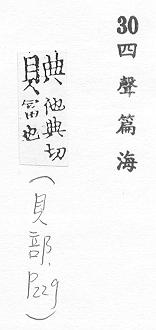 30 四聲篇海
賟他典切
富也
(貝部. P229)